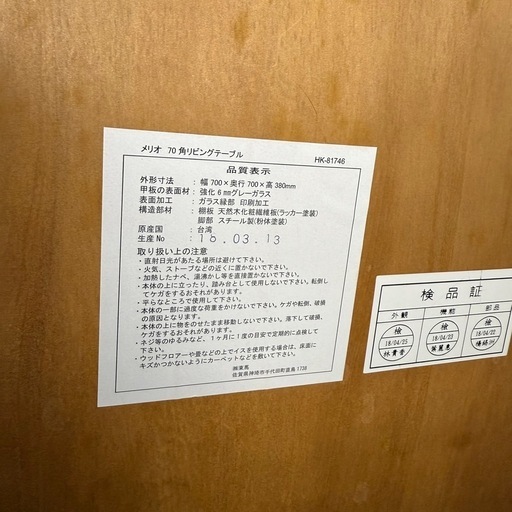 メリオ 70角リビングテーブル HK-81746
品質表示
外形寸法 : 幅700×奥行700×高380mm
甲板の表面材 : 強化6㎜グレーガラス
表面加工 : ガラス縁部 印刷加工
構造部材 : 棚板 天然木化粧繊維板(ラッカー塗装)
脚部 スチール製(粉体塗装)
原産国 : 台湾
生産No : 18.03.13
取り扱い上の注意
・直射日光があたる場所は避けて下さい。
・火気、ストーブなどの近くに置かないで下さい。
・加熱したナベ、湯沸かし等を直接置かないで下さい。
・本体の上に立ったり、踏み台として使用しないで下さい。転倒し
てケガをするおそれがあります。
・平らなところで使用して下さい。
・本体の一部に過度な荷重をかけないで下さい。ケガや転倒、破損
の原因となります。
・本体の上に物をのせたまま移動しないで下さい。落下して破損、
ケガをするおそれがあります。
・ネジ等のゆるみなど、1ヶ月に1度の目安で定期的に点検して
下さい。
・ウッドフロアーや畳などの上でイスを使用する場合は、床面に
キズがつかないようにカーペットなどを敷いて下さい。
㈱東馬
佐賀県神埼市千代田町直鳥1738
検品証
外観 機能 部品
検 検 検
18/04/25 18/04/23 18/04/22
林貴香